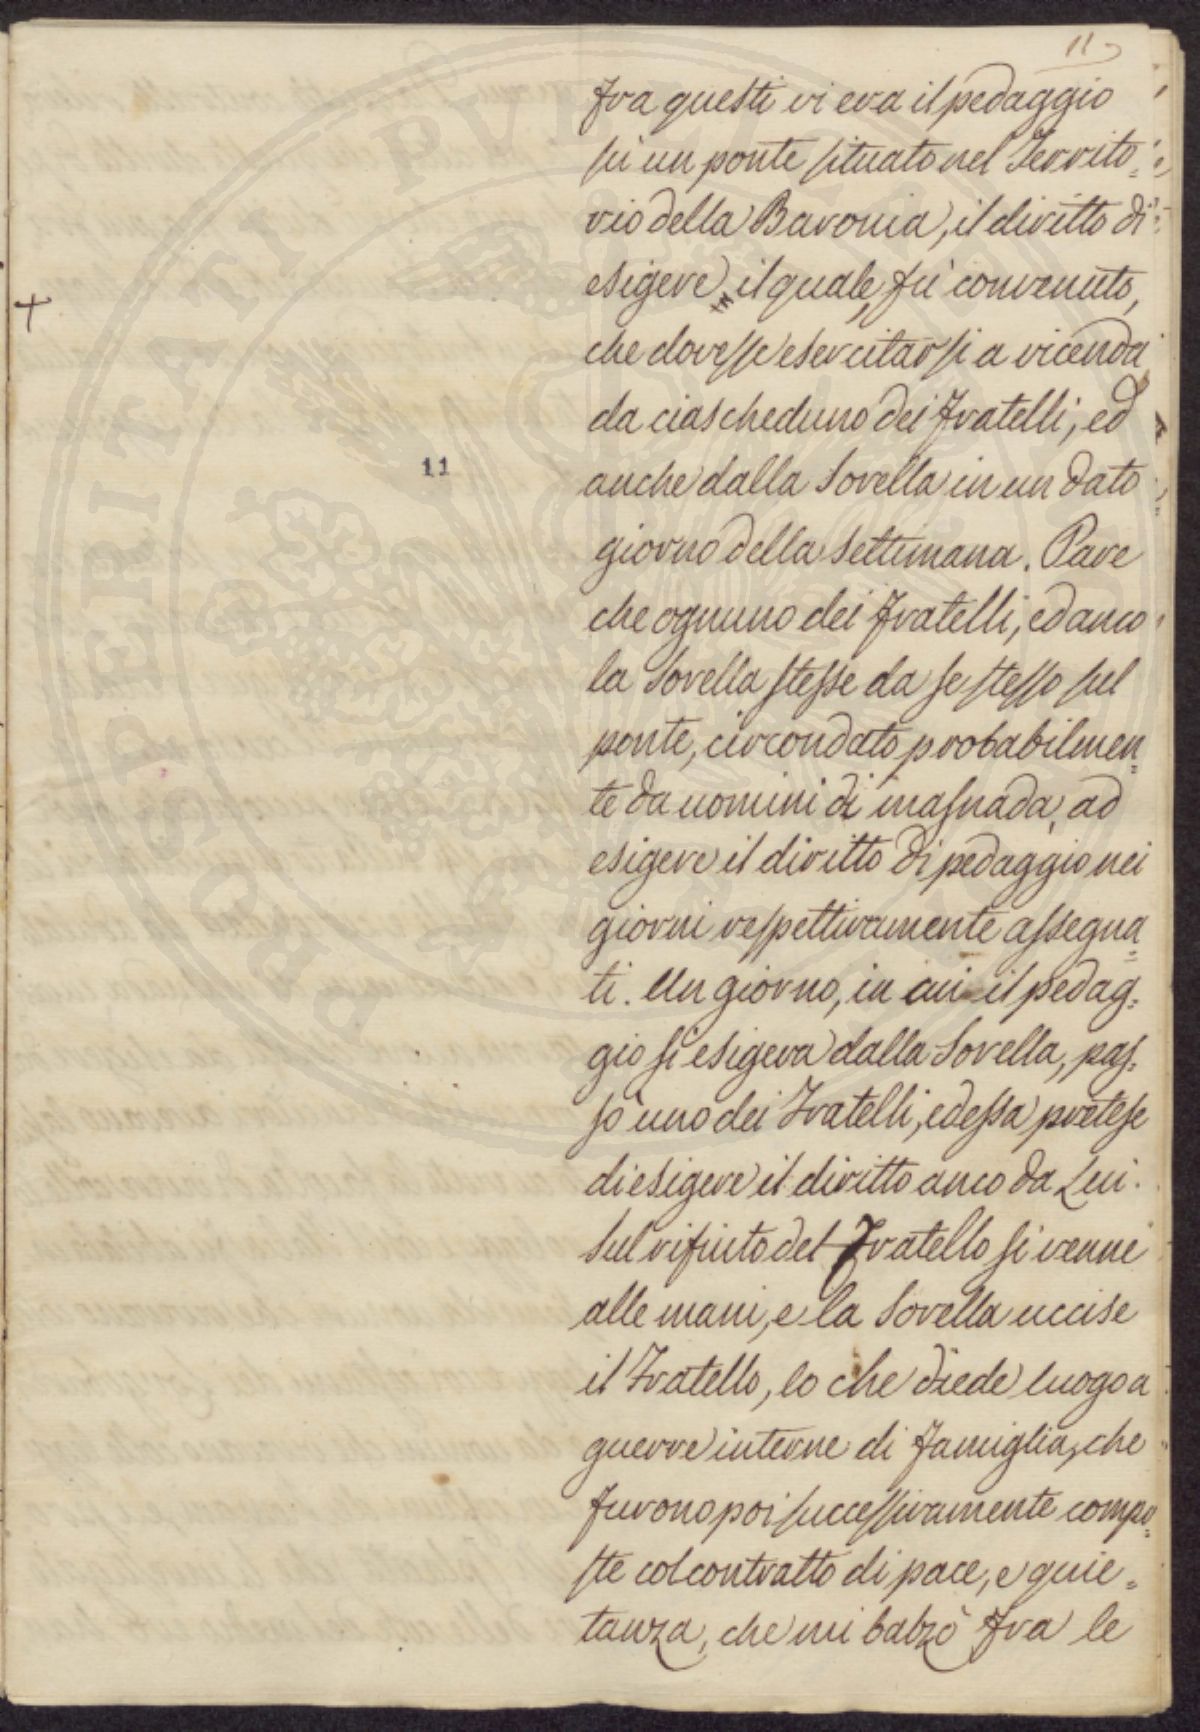 11
Fra questi vi era il pedaggio
sù un ponte situato nel Territo=
rio della Baronia, il diritto di
esigere il quale, fù convenuto,
che dovesse esercitarsi a vicenda
da ciascheduno dei Fratelli, ed
11
anche dalla Sorella in un dato
giorno della Settimana. Pare
che ognuno dei Fratelli, ed anco
la Sorella stesse da se stesso sul
ponte, circondato probabilmen=
te da uomini di masnada, ad
esigere il diritto di pedaggio nei
giorni respettivamente assegna=
ti. Un giorno, in cui il pedag=
gio si esigeva dalla Sorella, pas=
sò uno dei Fratelli, ed essa pretese
di esigere il diritto anco da Lui.
Sul rifiuto del Fratello si venne
alle mani, e la Sorella uccise
il Fratello, lo che diede luogo a
guerre interne di Famiglia, che
furono poi successivamente compo=
ste col contratto di pace, e quie=
tanza, che mi balzò fra le
PROSPERITATI PVBLICAE